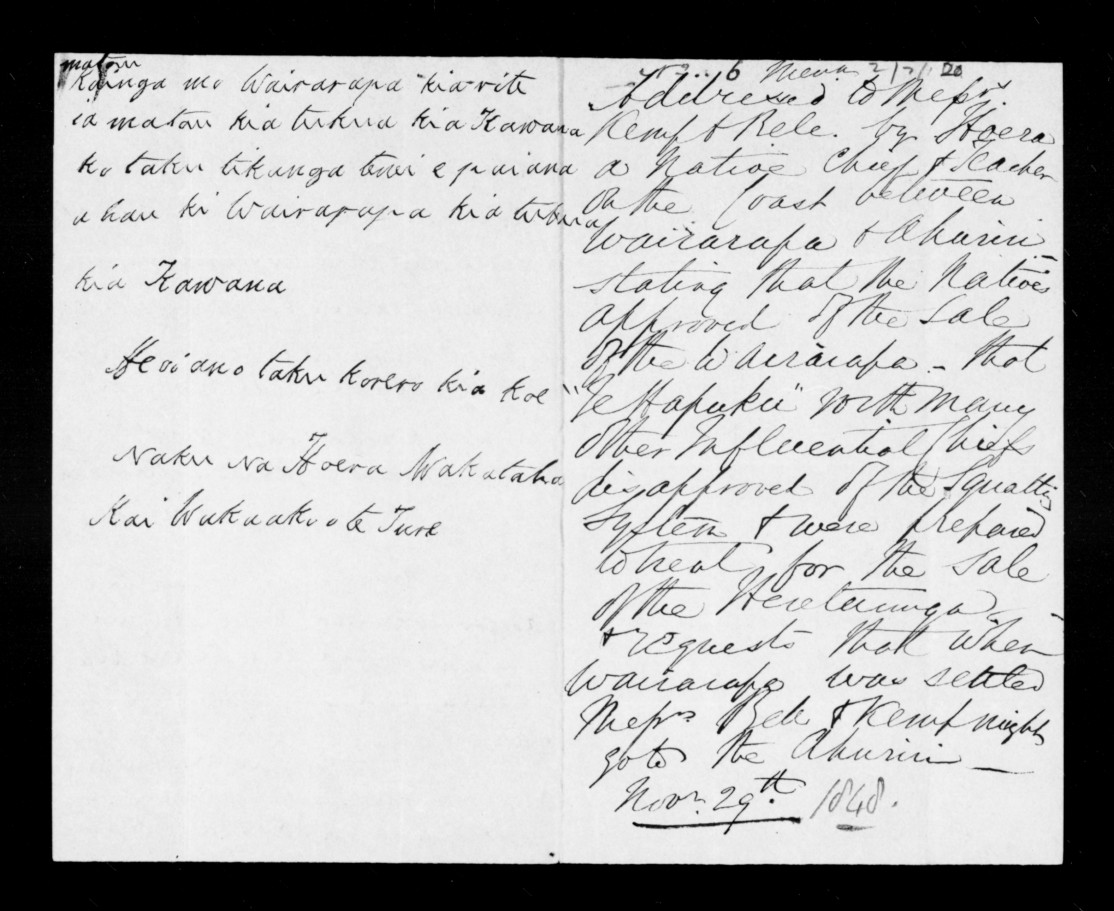 matou
Kainga mo Wairarapa kiarite
ia matou kia tukua kia Kawana
ko taku tikanga tenei e paiana
ahau ki Wairarapa kia tukua
kia Kawana
Heoi ano taku korero kia koe
Naku Na Hoera Wakataha
Kai Wakaako o te Ture
6
Addressed to Messrs.
Kemp & Bele. by Hoera
a Native Chief & Teacher
on the Coast between
Wairarapa & Ahuriri
stating that the Natives
approved of the Sale
of the Wairarapa - that
"Te Hapuku" with many
other Influential Chiefs
disapproved of the Squatting
System & were prepared
to treat for the Sale
of the Heretaunga -
& requests that when
Wairarapa was settled
Messrs Bele & Kemp might
go to the Ahuriri -
Novr. 29th. 1848.